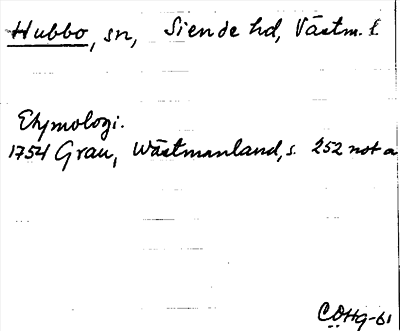 Hubbo, sn, Siende hd, Västm. l.
Etymologi.
1754 Grau, Wästmanland, s. 252 not a
CÖHg-61